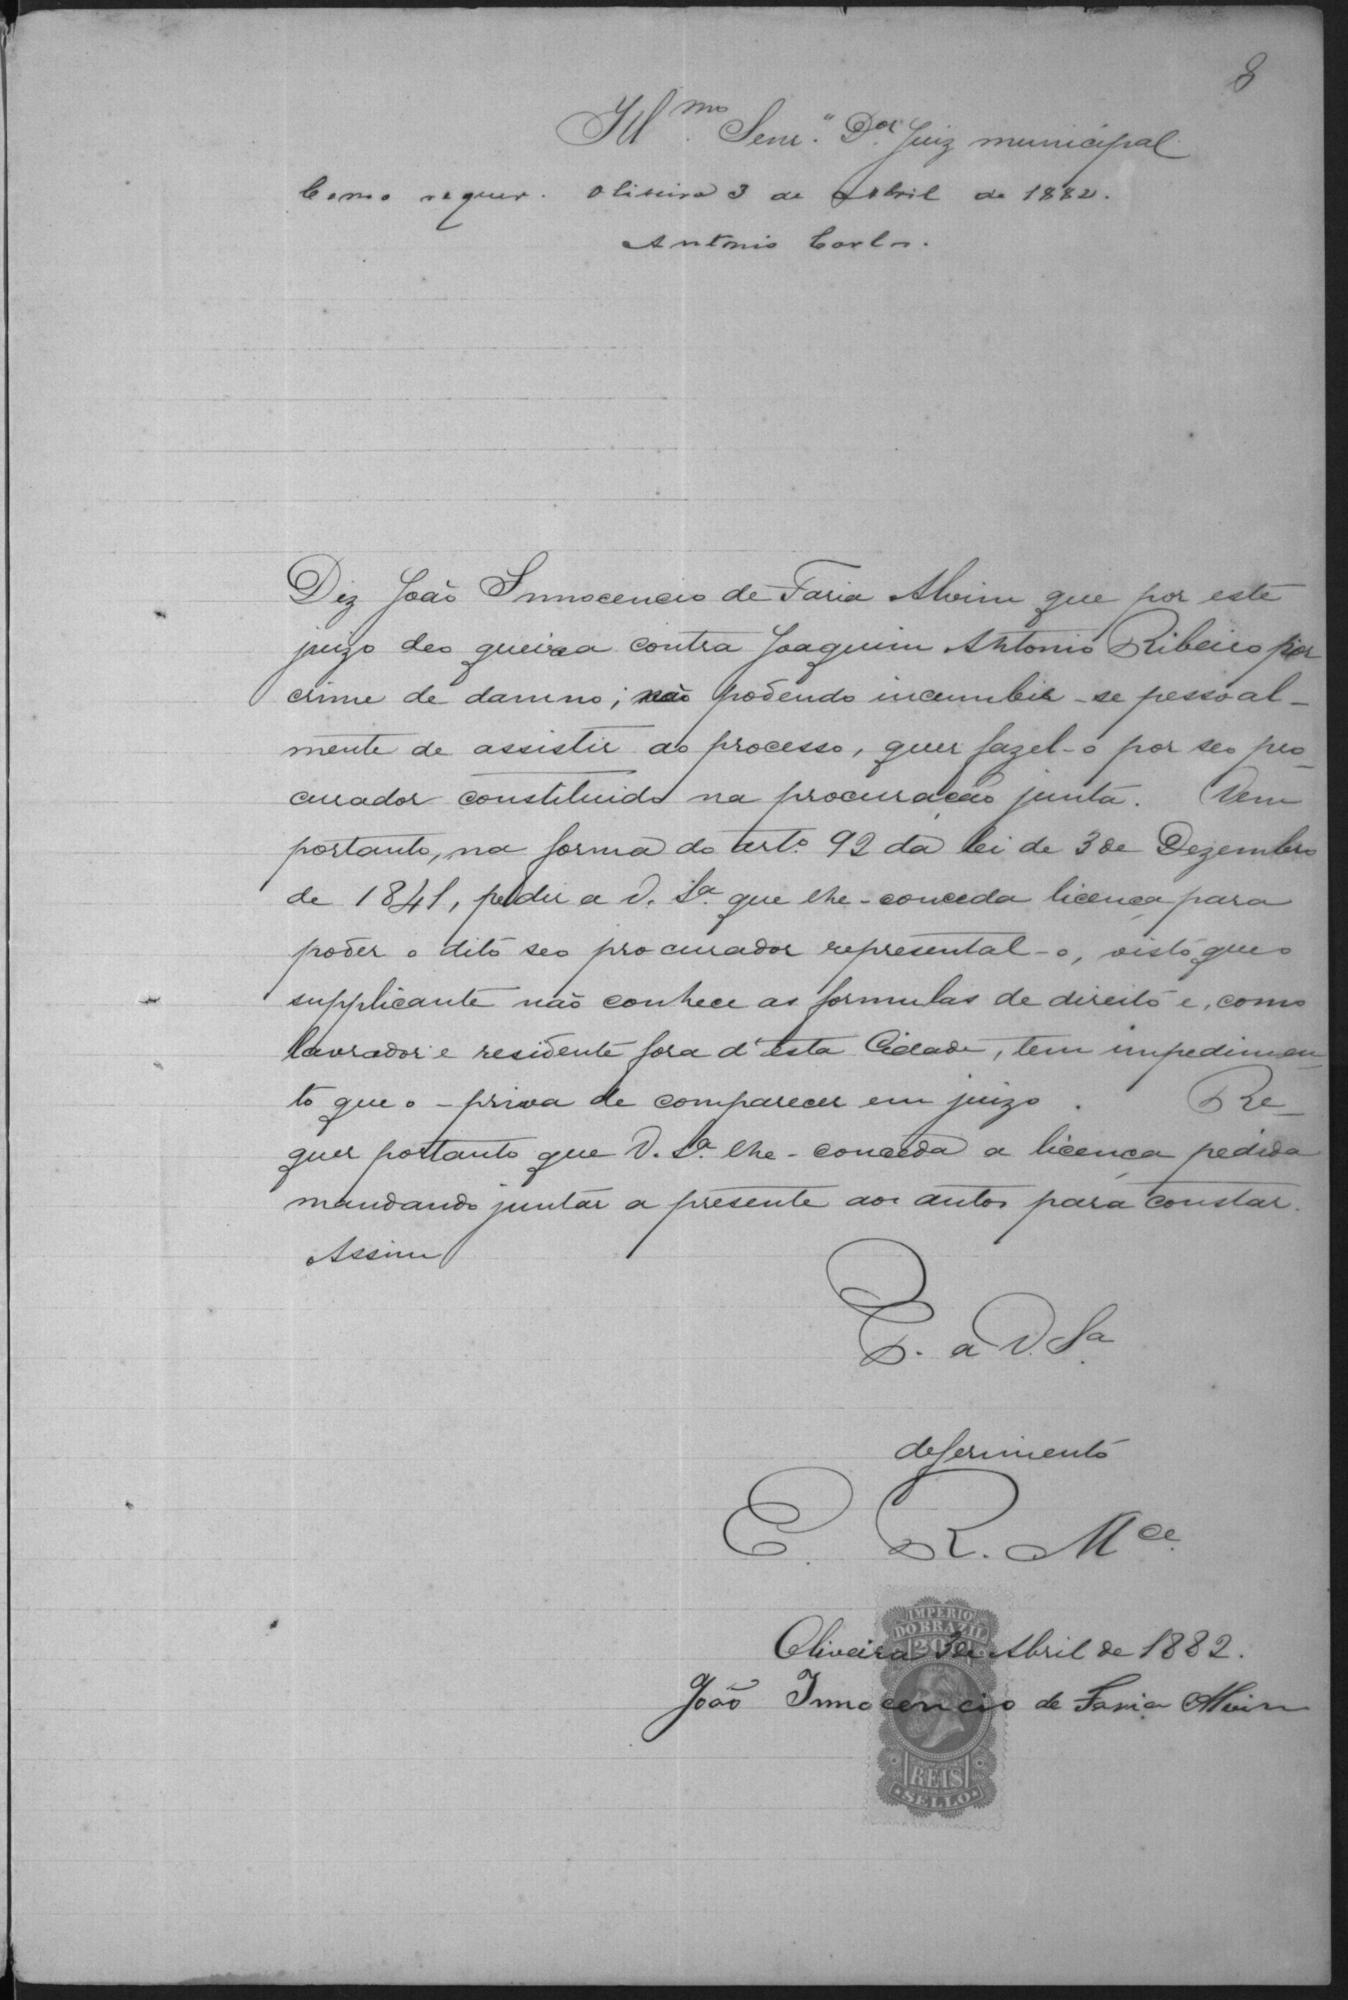 8
Ill.mo Senr. D.or Juiz municipal
Como requer. Oliveira 3 de Abril de 1882.
Antonio Carlos.
Diz João Innocencio de Faria Alvim que por este
juizo deo queixa contra Joaquim Antonio Ribeiro por
crime de damno; não podendo incumbir-se pessoal-
mente de assistir ao processo, quer fazel-o por seo pro-
curador constituido na procuração junta. Vem
portanto, na forma do art.º 92 da lei de 3 de Dezembro
de 1841, pedir a V. S.ª que lhe-conceda licença para
poder o dito seo procurador represental-o, visto que o
supplicante não conhece as formulas de direito e, como
lavrador e residente fora d'esta Cidade, tem impedimen-
to que o-priva de comparecer em juizo. Re-
quer portanto que V. S.ª lhe-conceda a licença pedida
mandando juntar a presente aos autos para constar.
Assim
P. a V. S.ª
deferimento
E. R. M.ce
Oliveira 3 de Abril de 1882.
João Innocencio de Faria Alvim
IMPERIO
DO BRAZIL
200
REIS
SELLO